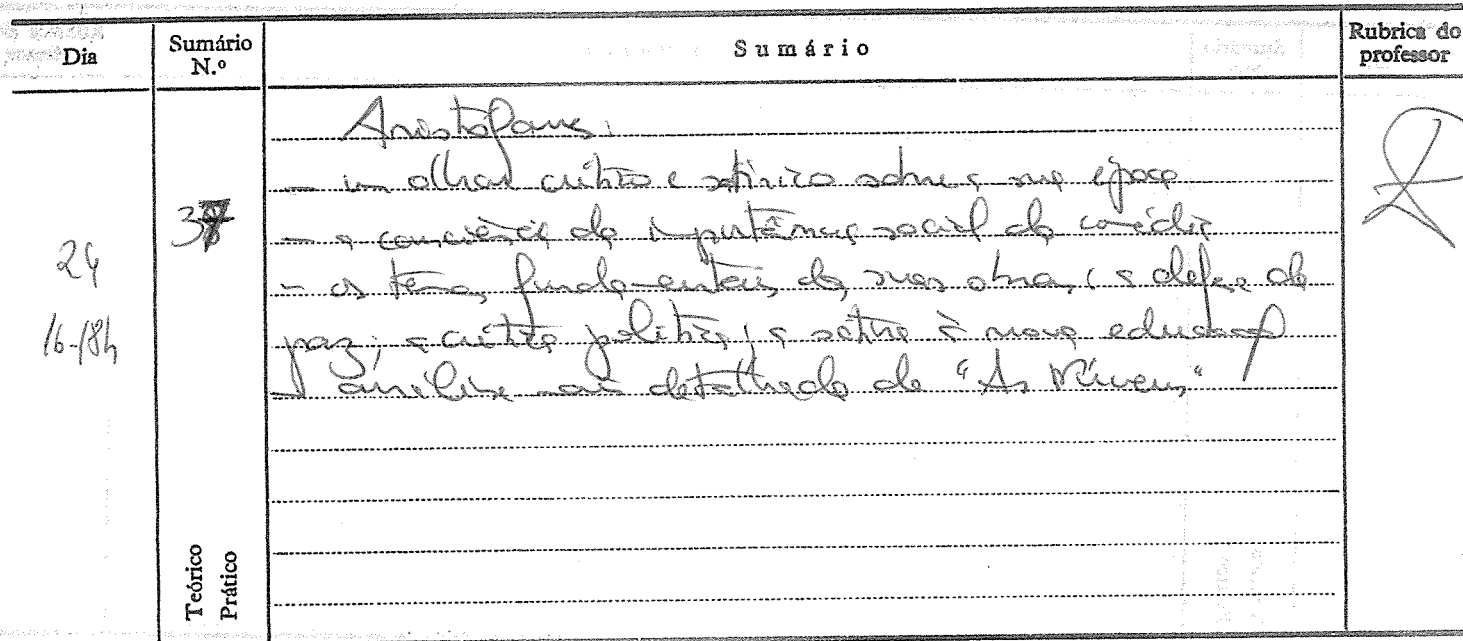 Dia
Sumário N.º
Sumário
Rubrica do professor
24
16-18h
37
Aristófanes:
- um olhar crítico e satírico sobre a sua época
- a consciência da importância social da comédia
- os temas fundamentais das suas obras: a defesa da
paz; a crítica política; a sátira à nova educação
- análise mais detalhada de "As Nuvens"
Teórico
Prático